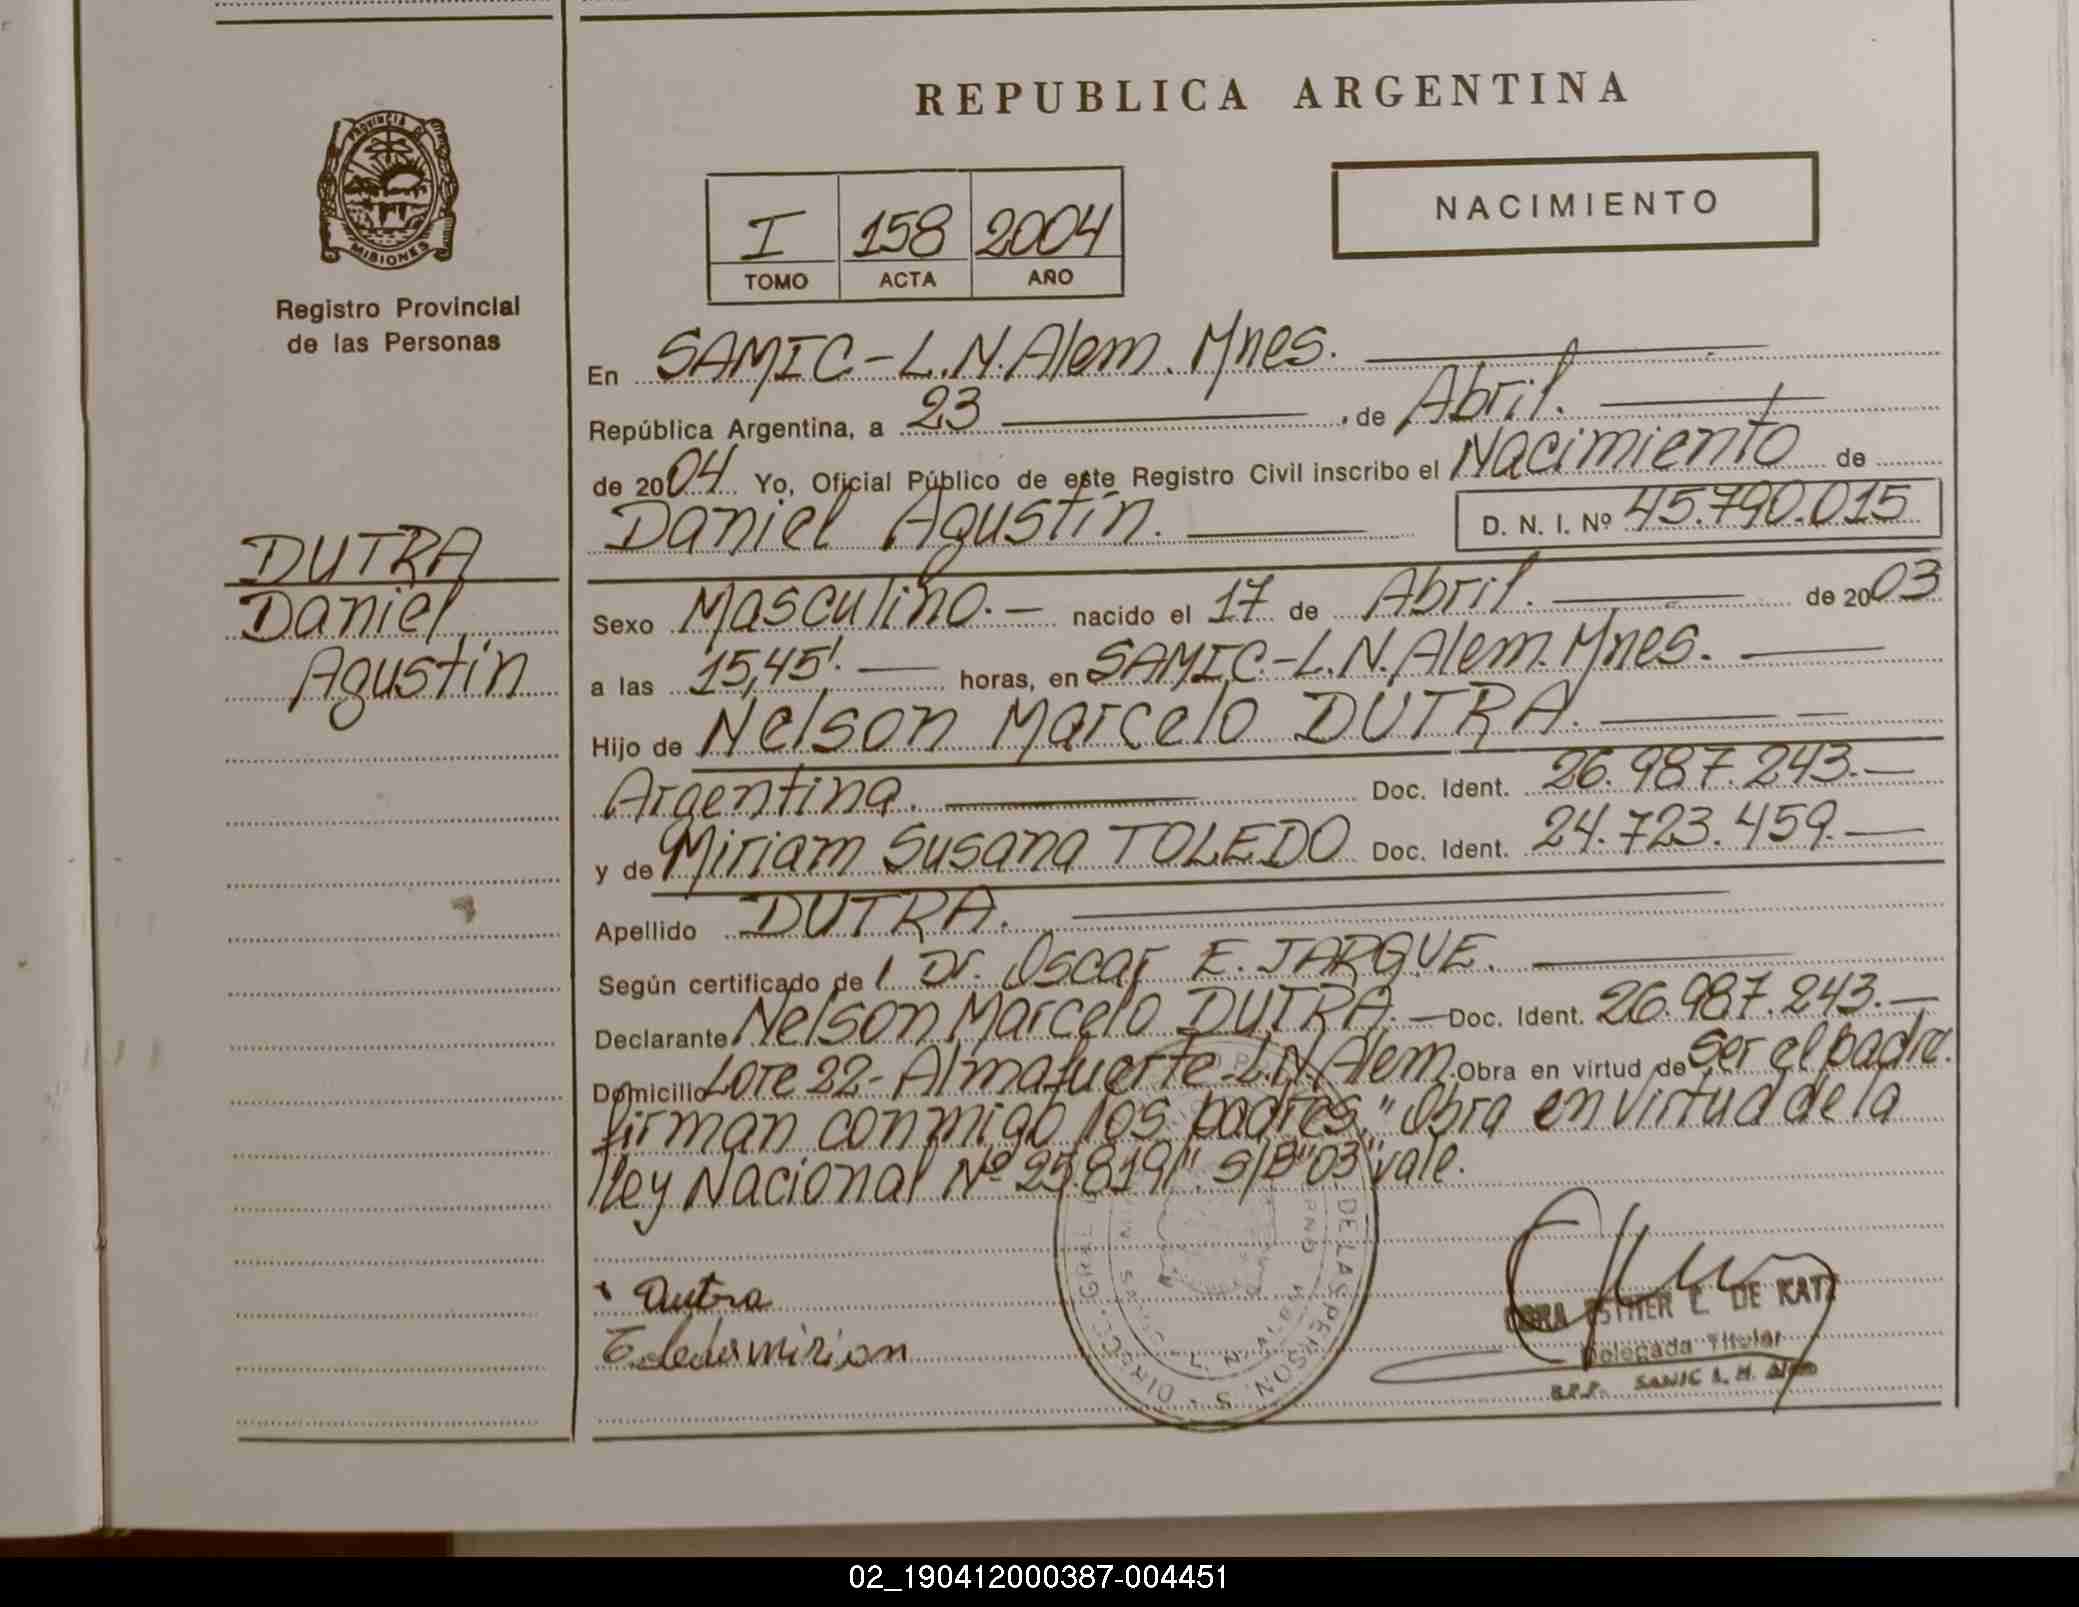 REPUBLICA ARGENTINA
PROVINCIA DE
MISIONES
Registro Provincial
de las Personas
NACIMIENTO
I 158 2004
TOMO ACTA AÑO
En SAMIC-L.N.Alem. Mnes.
República Argentina, a 23 , de Abril.
de 2004 Yo, Oficial Público de este Registro Civil inscribo el Nacimiento de
Daniel Agustín. D. N. I. Nº 45.790.015
DUTRA
Daniel
Agustín
Sexo Masculino.- nacido el 17 de Abril. de 2003
a las 15,45'. horas, en SAMIC.-L.N.Alem.Mnes.
Hijo de Nelson Marcelo DUTRA.
Argentina. Doc. Ident. 26.987.243.-
y de Miriam Susana TOLEDO Doc. Ident. 24.723.459.-
Apellido DUTRA.
Según certificado de l Dr. Oscar E. JARQUE.
Declarante Nelson Marcelo DUTRA.- Doc. Ident. 26.987.243.-
Domicilio Lote 22-Almafuerte-L.N.Alem. Obra en virtud de ser el padre.
firman conmigo los padres." Obra en virtud de la
lley Nacional Nº 25.819/". S/B"03"vale.
Dutra
Toledo mirian
ESTHER L. DE KATZ
Delegada Titular
R.P.P. SAMIC L. N. Alem
DE LAS PERSONAS
02_190412000387-004451